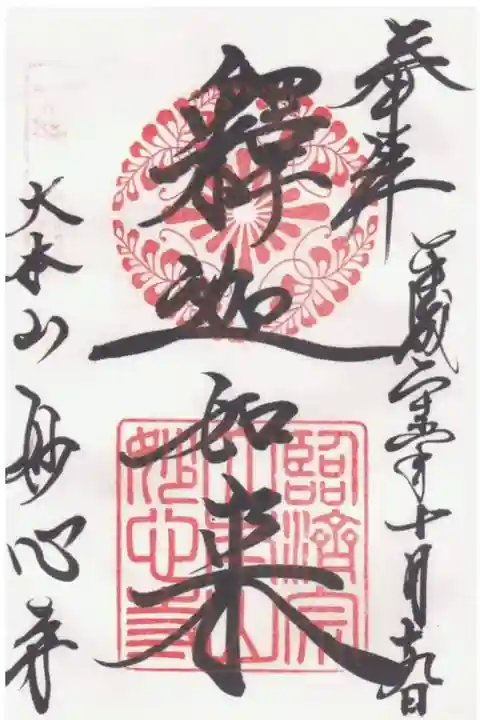 奉拝
平成二十六年十月十九日
釋迦如来
臨済宗
大本山
妙心寺
大本山妙心寺